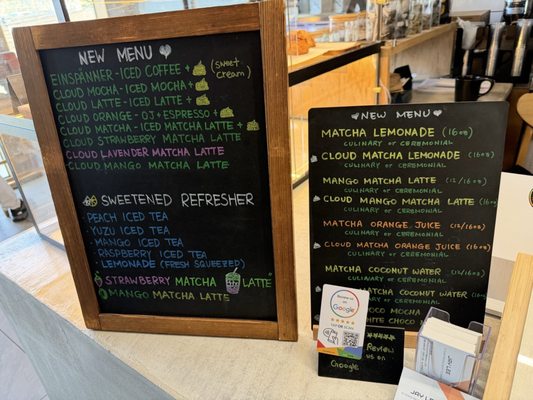 NEW MENU
EINSPÄNNER-ICED COFFEE +
(sweet cream)
CLOUD MOCHA-ICED MOCHA +
CLOUD LATTE-ICED LATTE +
CLOUD ORANGE-OJ+ESPRESSO+
CLOUD MATCHA-ICED MATCHA LATTE+
CLOUD STRAWBERRY MATCHA LATTE
CLOUD LAVENDER MATCHA LATTE
CLOUD MANGO MATCHA LATTE
SWEETENED REFRESHER
PEACH ICED TEA
YUZU ICED TEA
MANGO ICED TEA
RASPBERRY ICED TEA
LEMONADE (FRESH SQUEEZED)
STRAWBERRY MATCHA LATTE
MANGO MATCHA LATTE
NEW MENU
MATCHA LEMONADE (16oz)
CULINARY or CEREMONIAL
CLOUD MATCHA LEMONADE (16oz)
CULINARY or CEREMONIAL
MANGO MATCHA LATTE (12/16oz)
CULINARY or CEREMONIAL
CLOUD MANGO MATCHA LATTE (16oz)
CULINARY or CEREMONIAL
MATCHA ORANGE JUICE (12/16oz)
CULINARY or CEREMONIAL
CLOUD MATCHA ORANGE JUICE (16oz)
CULINARY or CEREMONIAL
MATCHA COCONUT WATER (12/16oz)
CULINARY or CEREMONIAL
MATCHA COCONUT WATER (16oz)
CULINARY or CEREMONIAL
COCO MOCHA
WHITE CHOCO
Review us on
Google
Review
us on
Google
JAY